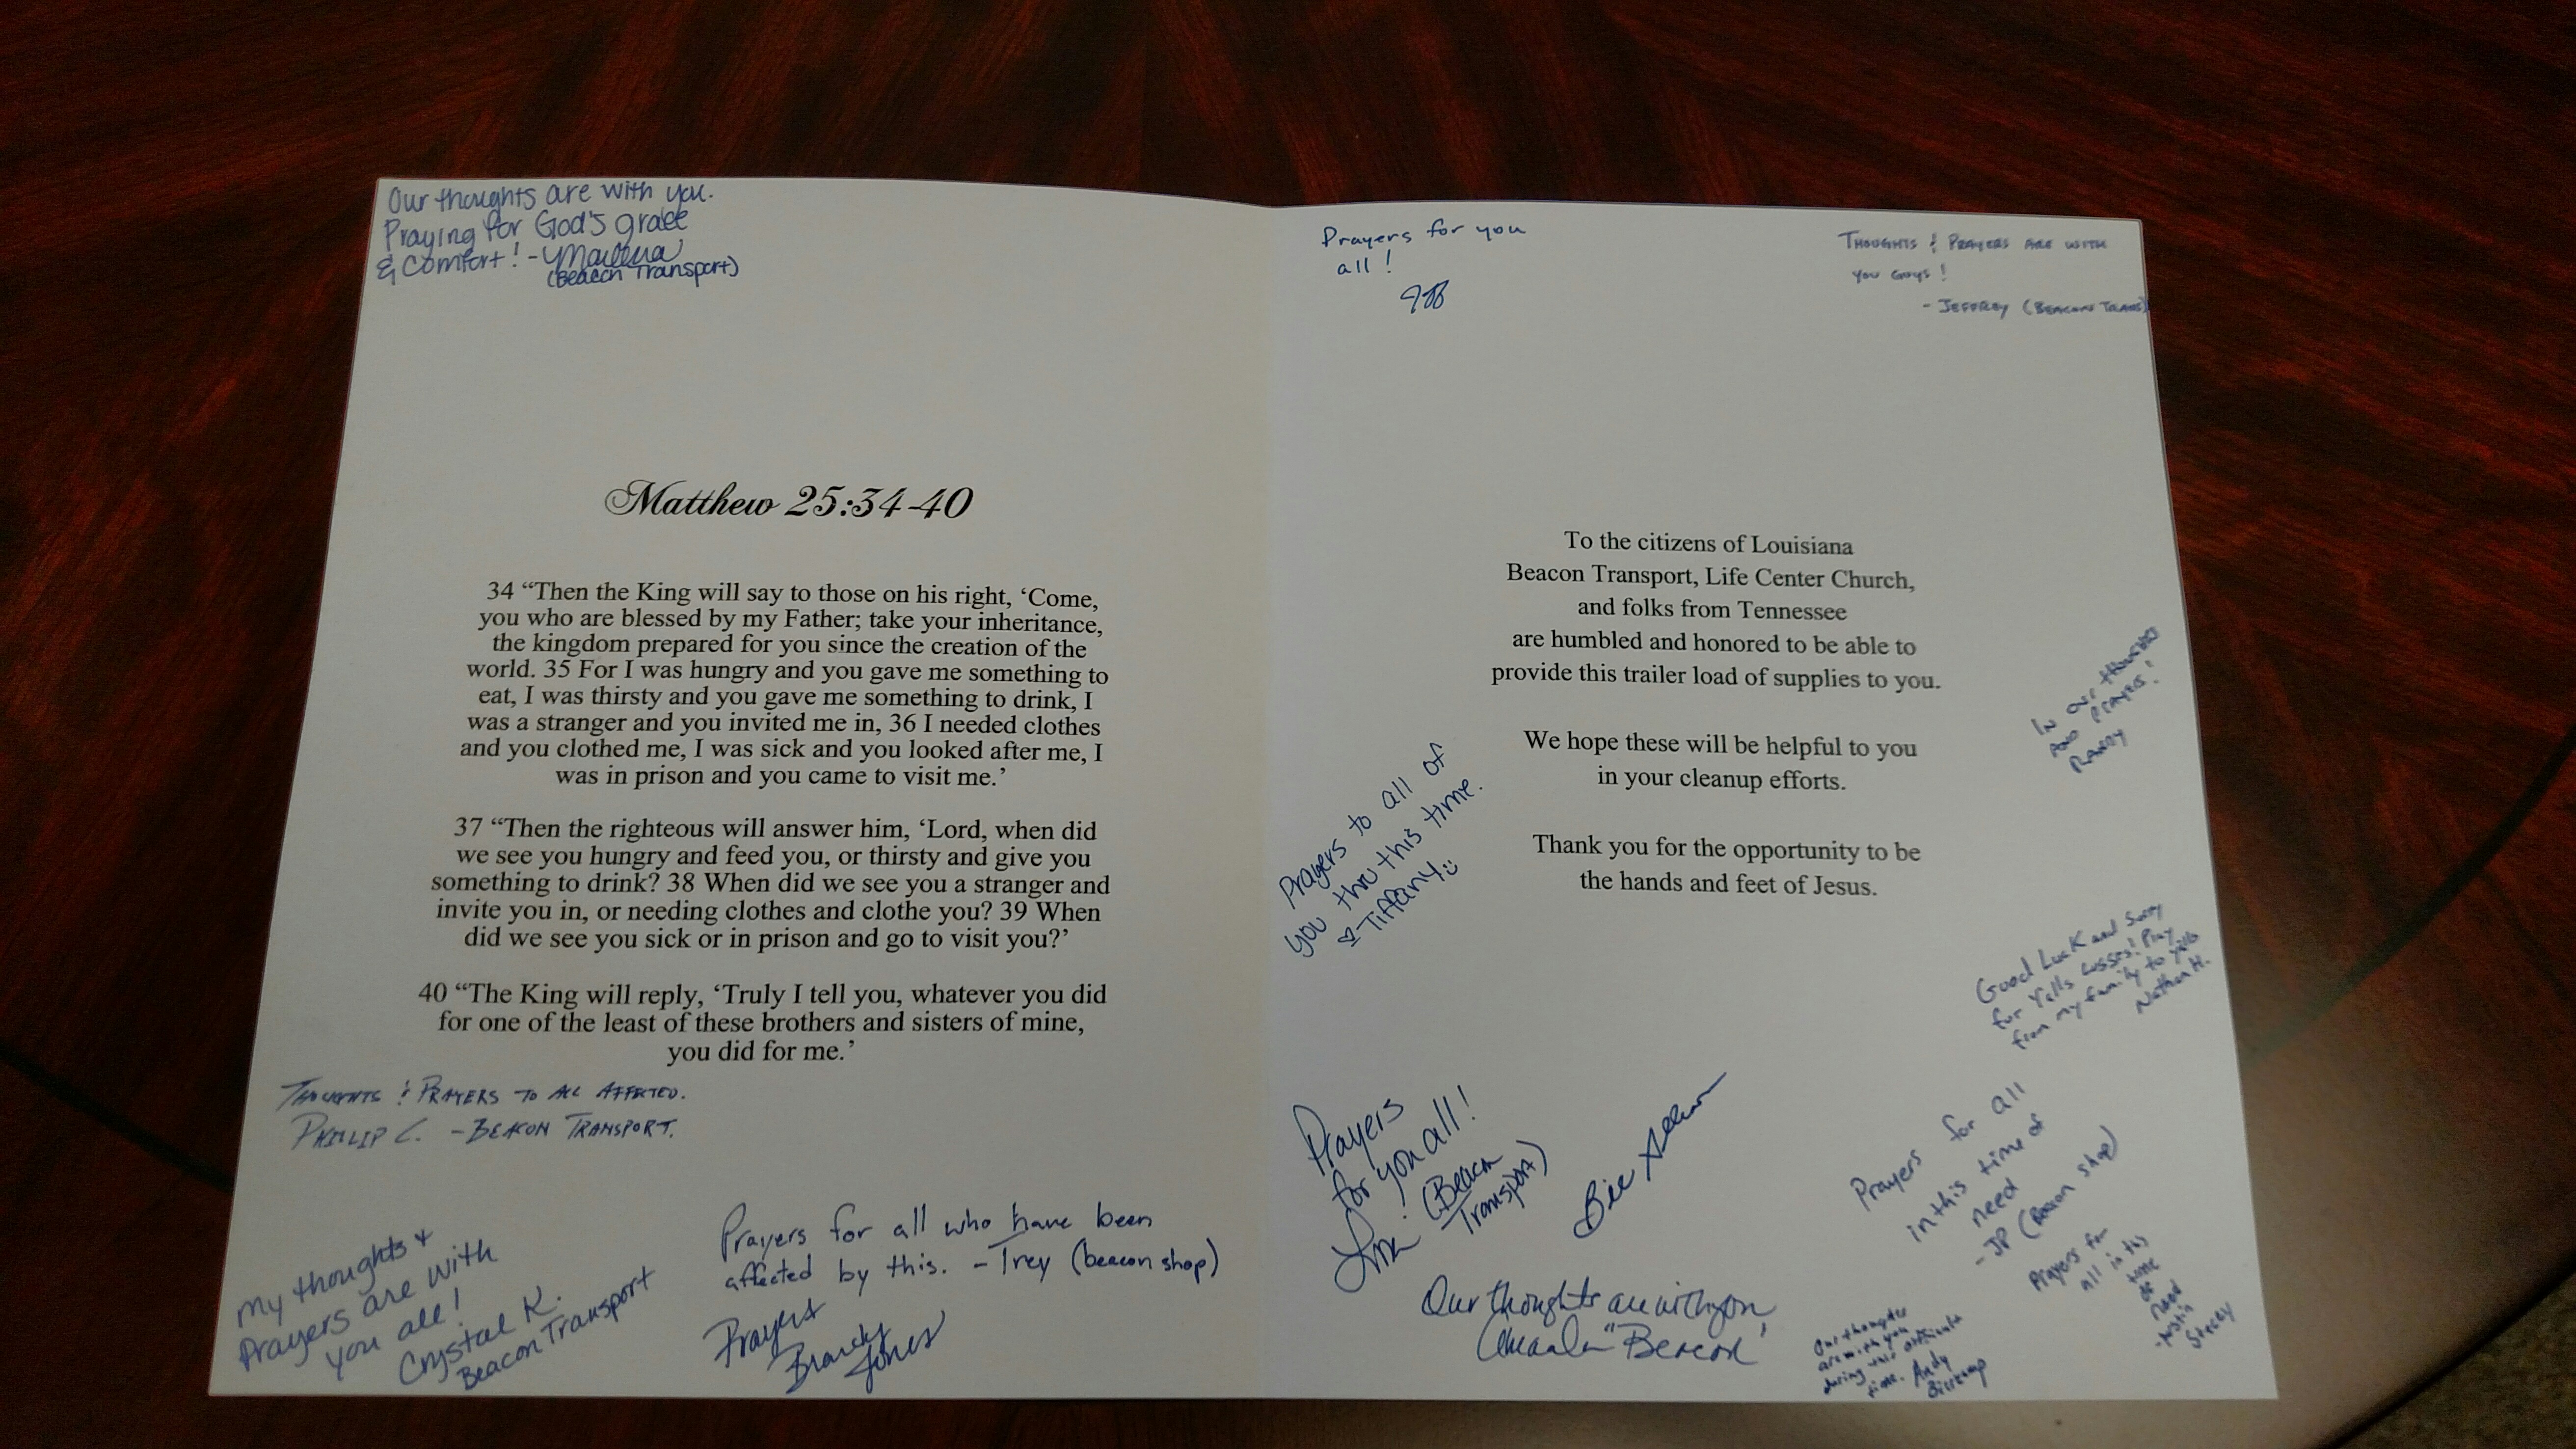 Our thoughts are with you.
Praying for God's grace
& Comfort! -
(Beacon Transport)
Matthew 25:34-40
34 “Then the King will say to those on his right, ‘Come,
you who are blessed by my Father; take your inheritance,
the kingdom prepared for you since the creation of the
world. 35 For I was hungry and you gave me something to
eat, I was thirsty and you gave me something to drink, I
was a stranger and you invited me in, 36 I needed clothes
and you clothed me, I was sick and you looked after me, I
was in prison and you came to visit me.’
37 “Then the righteous will answer him, ‘Lord, when did
we see you hungry and feed you, or thirsty and give you
something to drink? 38 When did we see you a stranger and
invite you in, or needing clothes and clothe you? 39 When
did we see you sick or in prison and go to visit you?’
40 “The King will reply, ‘Truly I tell you, whatever you did
for one of the least of these brothers and sisters of mine,
you did for me.’
THOUGHTS & PRAYERS TO ALL AFFECTED.
PHILLIP C. - BEACON TRANSPORT.
My thoughts +
Prayers are with
you all!
Crystal K.
Beacon Transport
Prayers for all who have been
affected by this. - Trey (beacon shop)
Prayers
Brandy
Jones
Prayers for you
all!
Jeff
THOUGHTS & PRAYERS ARE WITH
YOU GUYS!
- JEFFREY (BEACON TRANS)
To the citizens of Louisiana
Beacon Transport, Life Center Church,
and folks from Tennessee
are humbled and honored to be able to
provide this trailer load of supplies to you.
We hope these will be helpful to you
in your cleanup efforts.
Thank you for the opportunity to be
the hands and feet of Jesus.
In our thoughts
and prayers!
Randy
Prayers to all of
you thru this time.
-Tiffany
Good Luck and Sorry
for Yalls Losses! Pray
from my family to yalls
Nathan H.
Prayers
for you all!
(Beacon
Transport)
Prayers for all
in this time of
need
- JP (Beacon shop)
Prayers for
all in this
time
of
need
-Justin
Stacey
Our thoughts are with you
"Beacon"
Our thoughts
are with you
during this difficult
time. Andy